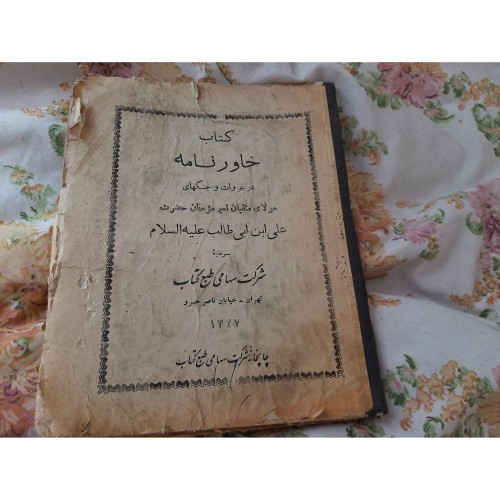 کتاب
خاور نامه
در غزوات و جنگهای
مولای متقیان امیر مؤمنان حضرت
علی ابن ابی طالب علیه السلام
سرمایه
شرکت سهامی طبع کتاب
تهران - خیابان ناصر خسرو
چاپخانه شرکت سهامی طبع کتاب